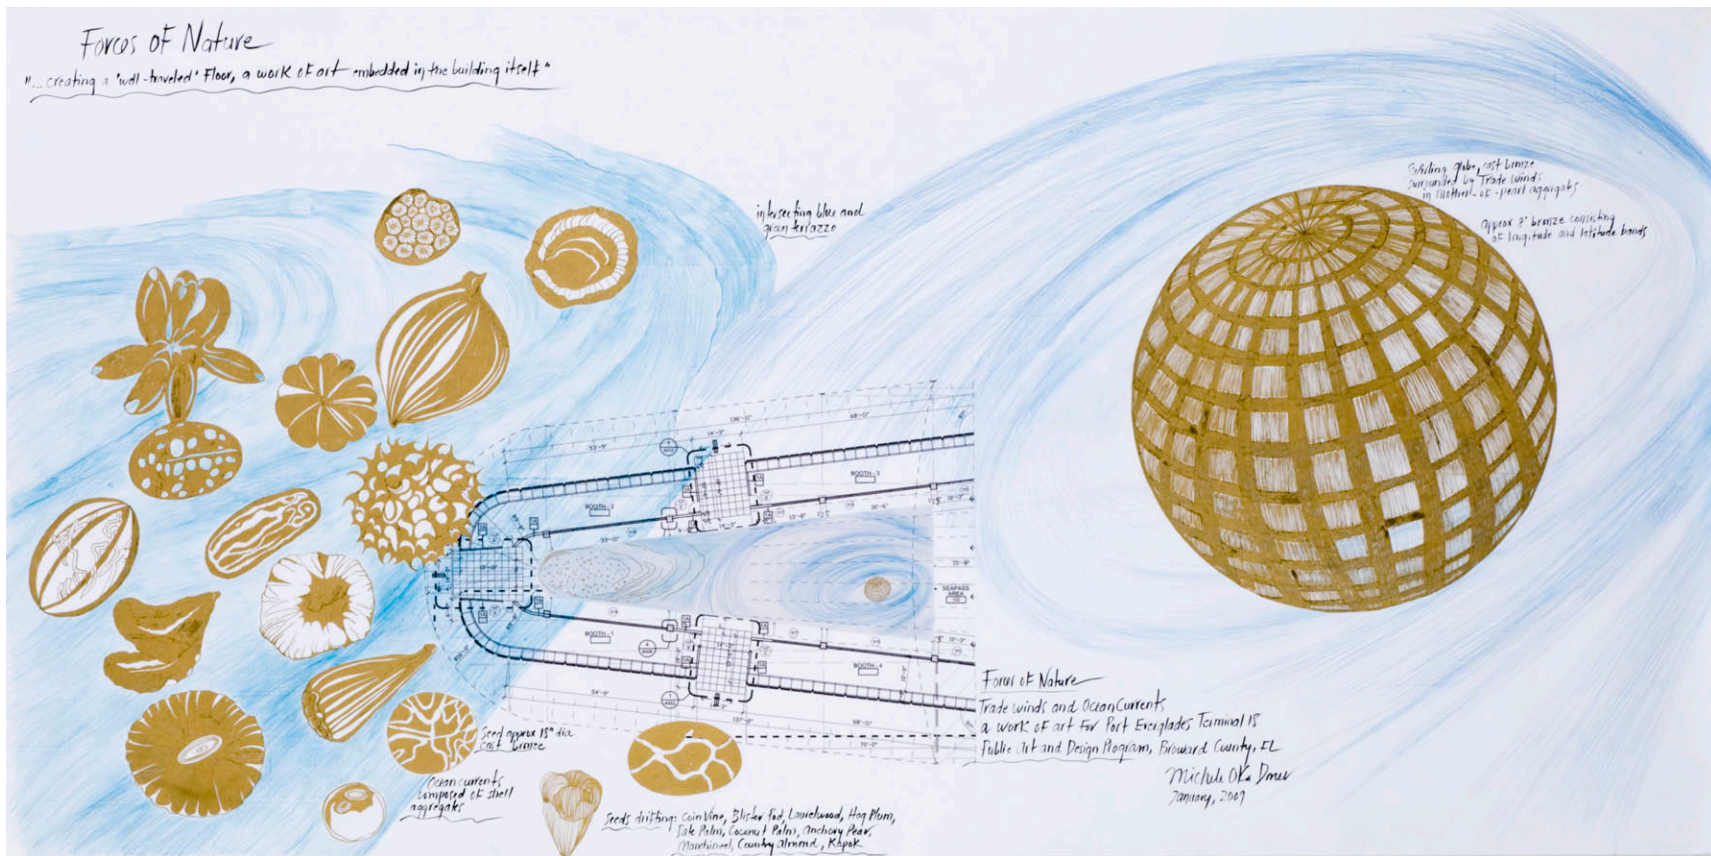 Forces of Nature
"... creating a 'well-traveled' floor, a work of art embedded in the building itself"
intersecting blue and
green terrazzo
globe, cast bronze
surrounded by Trade Winds
in mother-of-pearl aggregates
approx 8' bronze consisting
of longitude and latitude bands
BOOTH-2
BOOTH-3
BOOTH-1
BOOTH-4
SEAPASS
AREA
Seed approx 18" dia
cast bronze
Ocean currents
composed of shell
aggregates
Seeds drifting: Coin Vine, Blister Pod, Laurelwood, Hog Plum,
Palm, Coconut Palm, Anchovy Pear,
Manchineel, Country almond, Kapok
Forces of Nature
Trade Winds and Ocean Currents
a work of art for Port Everglades Terminal 18
Public Art and Design Program, Broward County, FL
Michele Oka Doner
January, 2009